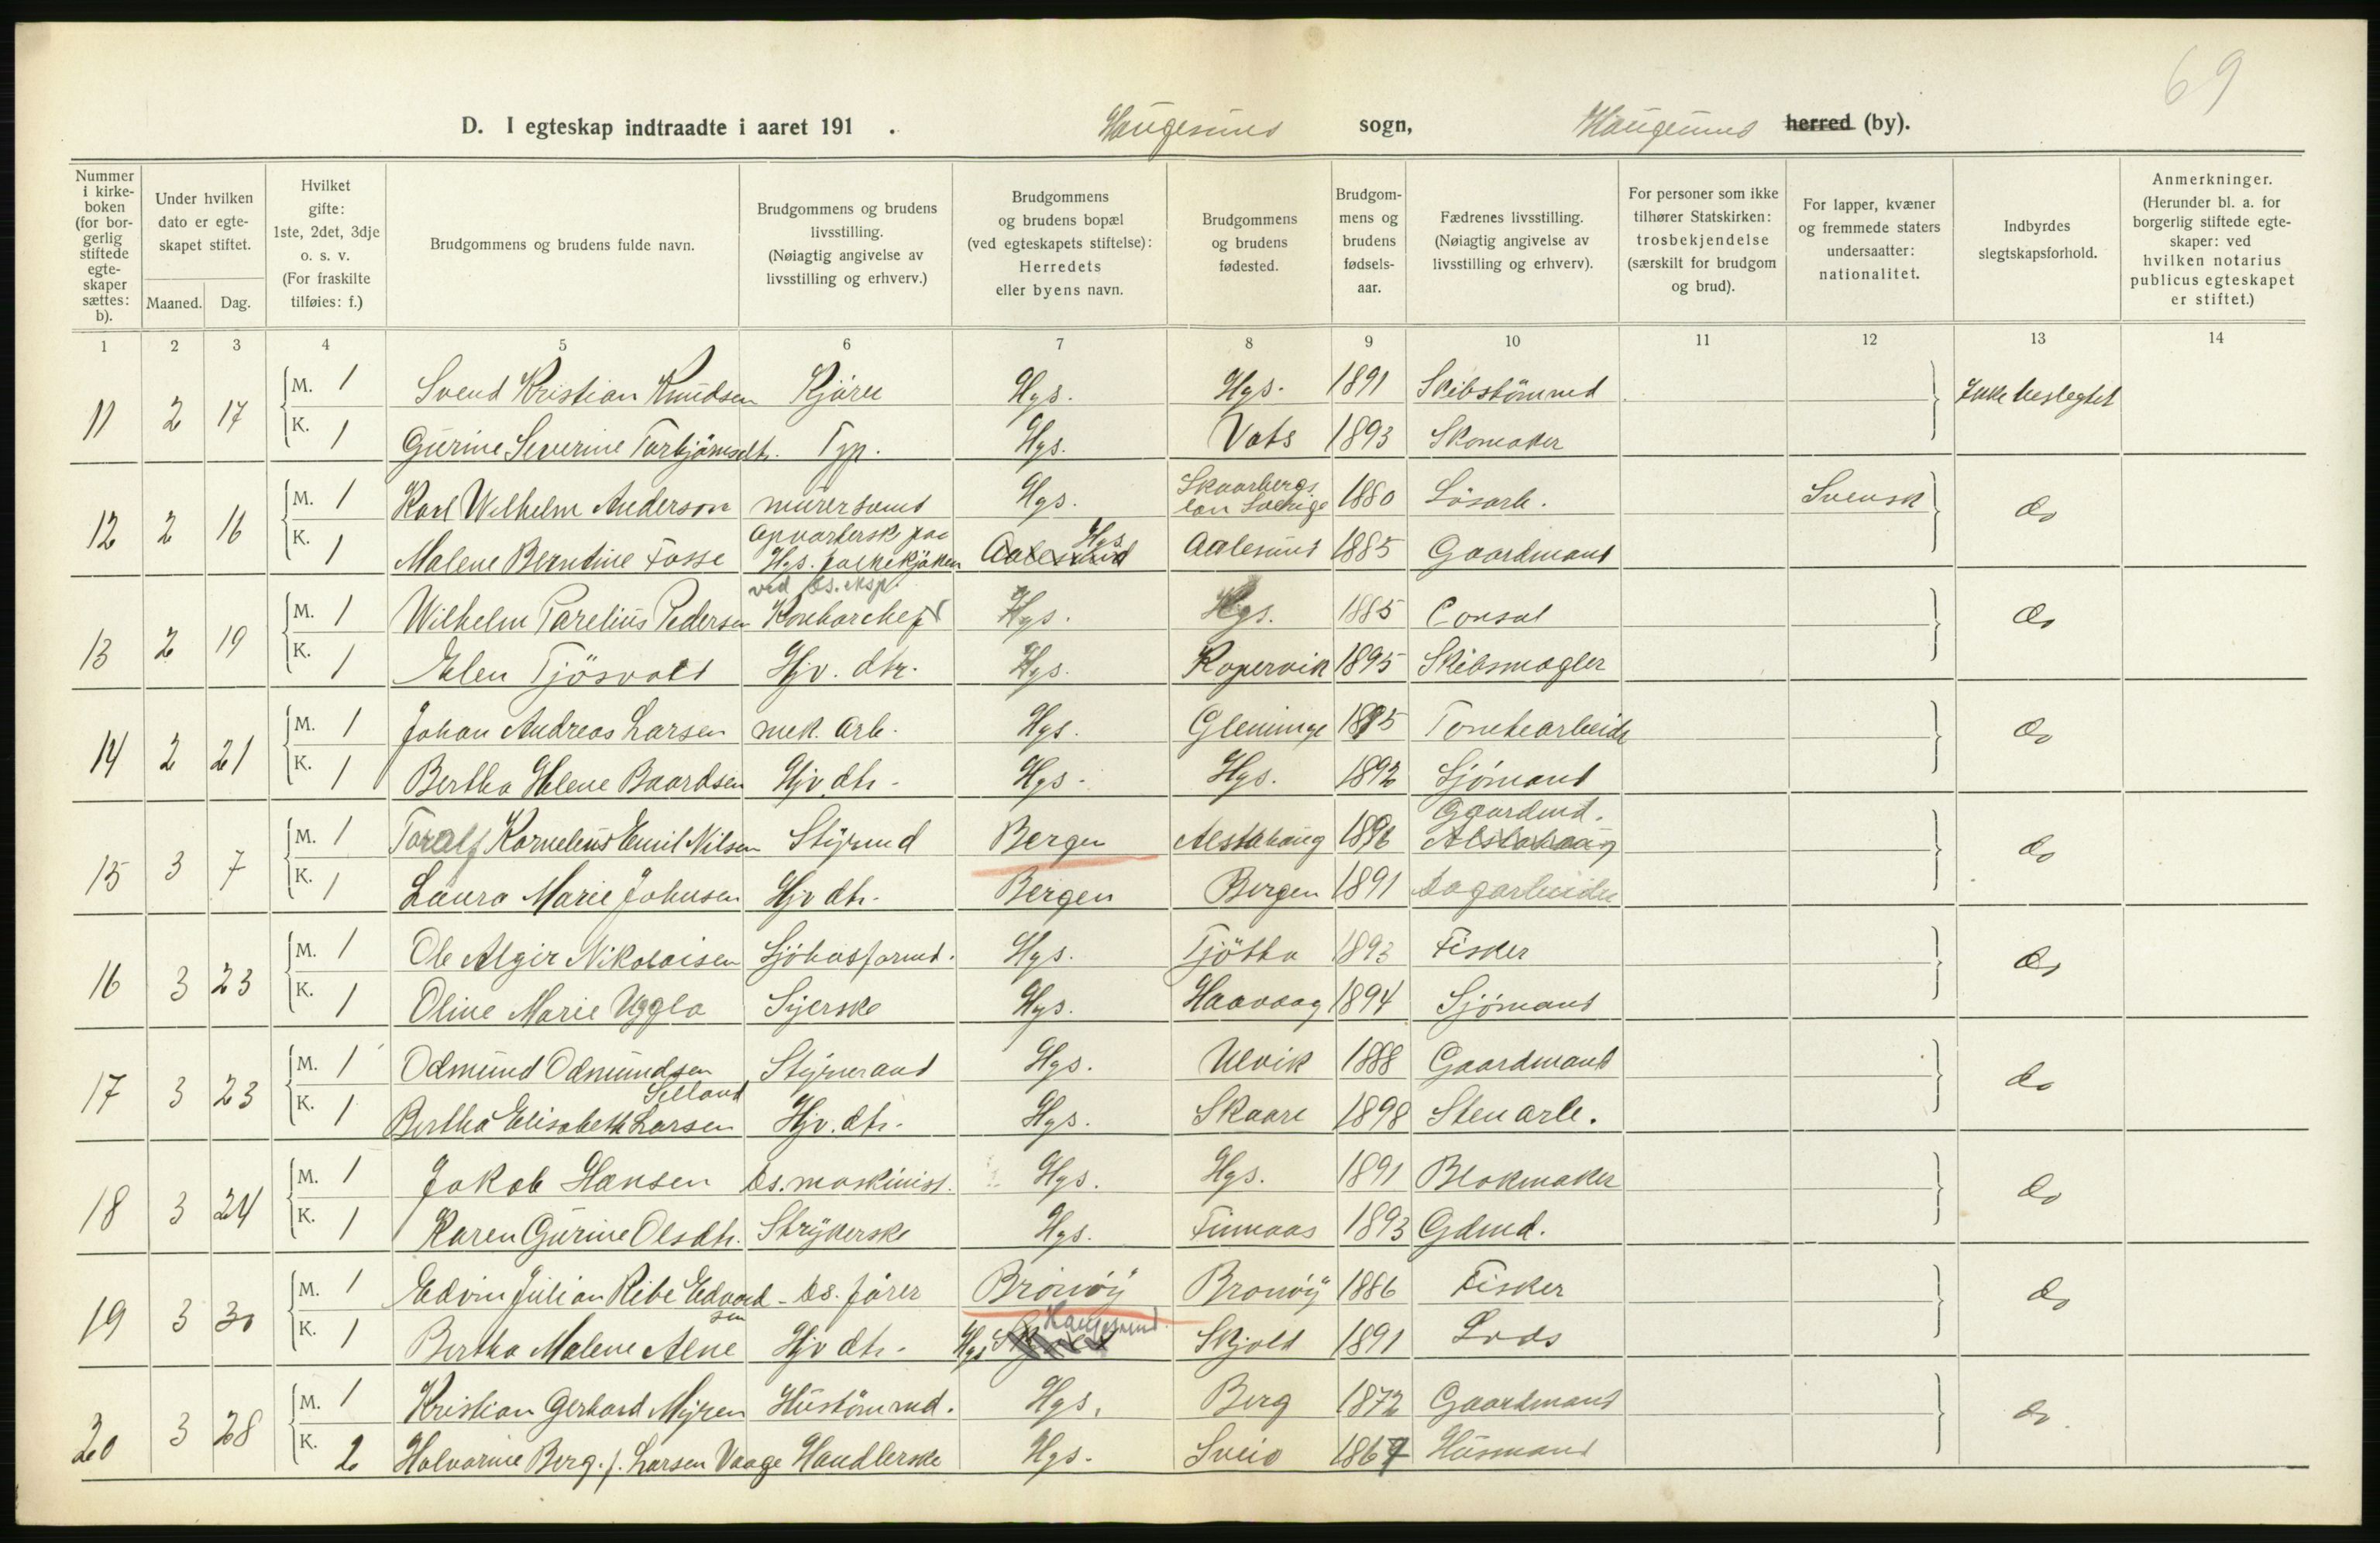 69
D. I egteskap indtraadte i aaret 191 . Haugesund sogn, Haugesund herred (by).
Nummer i kirkeboken (for borgerlig stiftede egteskaper sættes: b). Under hvilken dato er egteskapet stiftet. Maaned. Dag. Hvilket gifte: 1ste, 2det, 3dje o. s. v. (For fraskilte tilføies: f.) Brudgommens og brudens fulde navn. Brudgommens og brudens livsstilling. (Nøiagtig angivelse av livsstilling og erhverv.) Brudgommens og brudens bopæl (ved egteskapets stiftelse): Herredets eller byens navn. Brudgommens og brudens fødested. Brudgommens og brudens fødselsaar. Fædrenes livsstilling. (Nøiagtig angivelse av livsstilling og erhverv). For personer som ikke tilhører Statskirken: trosbekjendelse (særskilt for brudgom og brud). For lapper, kvæner og fremmede staters undersaatter: nationalitet. Indbyrdes slegtskapsforhold. Anmerkninger. (Herunder bl. a. for borgerlig stiftede egteskaper: ved hvilken notarius publicus egteskapet er stiftet.)
1 2 3 4 5 6 7 8 9 10 11 12 13 14
11 2 17 M. 1 Svend Kristian Knudsen Kjører Hgs. Hgs. 1891 Skibstømmd Ikke beslegtet
K. 1 Gurine Severine Torbjørnsdtr. Typ. Hgs. Vats 1893 Skomaker
12 2 16 M. 1 Karl Wilhelm Anderson murersvend Hgs. Skaarbergs län Sverige 1880 Løsarb. Svensk do
K. 1 Malene Berntine Fosse Opvartersk paa Hgs. folkekjøken Aalesund Hgs Aalesund 1885 Gaardmand
13 2 19 M. 1 Wilhelm Parelius Pedersen Kontorchef ved ds. eksp Hgs. Hgs. 1885 Consul do
K. 1 Elen Tjøsvold Hjv. dtr. Hgs. Kopervik 1895 Skibsmægler
14 2 21 M. 1 Johan Andreas Larsen mek. arb. Hgs. Glemminge 1895 Tomtearbeide do
K. 1 Bertha Helene Baardsen Hjv. dtr. Hgs. Hgs. 1892 Sjømand
15 3 7 M. 1 Toralf Kornelius Emil Nilsen Styrmd Bergen Alstahaug 1896 Gaardmd. Alstahaug do
K. 1 Laura Marie Johnsen Hjv dtr. Bergen Bergen 1891 Dagarbeider
16 3 23 M. 1 Ole Algir Nikolaisen Sjøhusformd. Hgs. Tjøtta 1893 Fisker do
K. 1 Oline Marie Uggla Syerske Hgs. Haavaag 1894 Sjømand
17 3 23 M. 1 Odmund Odmundsen Styrmand Hgs. Ulvik 1888 Gaardmand do
K. 1 Bertha Elisabeth Larsen Selland Hjv. dtr. Hgs. Skaare 1898 Stenarb.
18 3 24 M. 1 Jakob Hansen Ds. maskinist. Hgs. Hgs. 1891 Blokmaker do
K. 1 Karen Gurine Olsdtr. Strykerske Hgs. Finnaas 1893 Gdmd.
19 3 30 M. 1 Edvin Julian Ribe Edvardsen Ds. fører Brønøy Brønøy 1886 Fisker do
K. 1 Bertha Malene Alne Hjv dtr. Hgs Haugesund. Skjold 1891 Lods
20 3 28 M. 1 Kristian Gerhard Myren Hustømmd. Hgs. Berg 1872 Gaardmand do.
K. 2 Halvarine Berg. f. Larsen Vaage Handlerske Hgs. Sveio 1867 Husmand